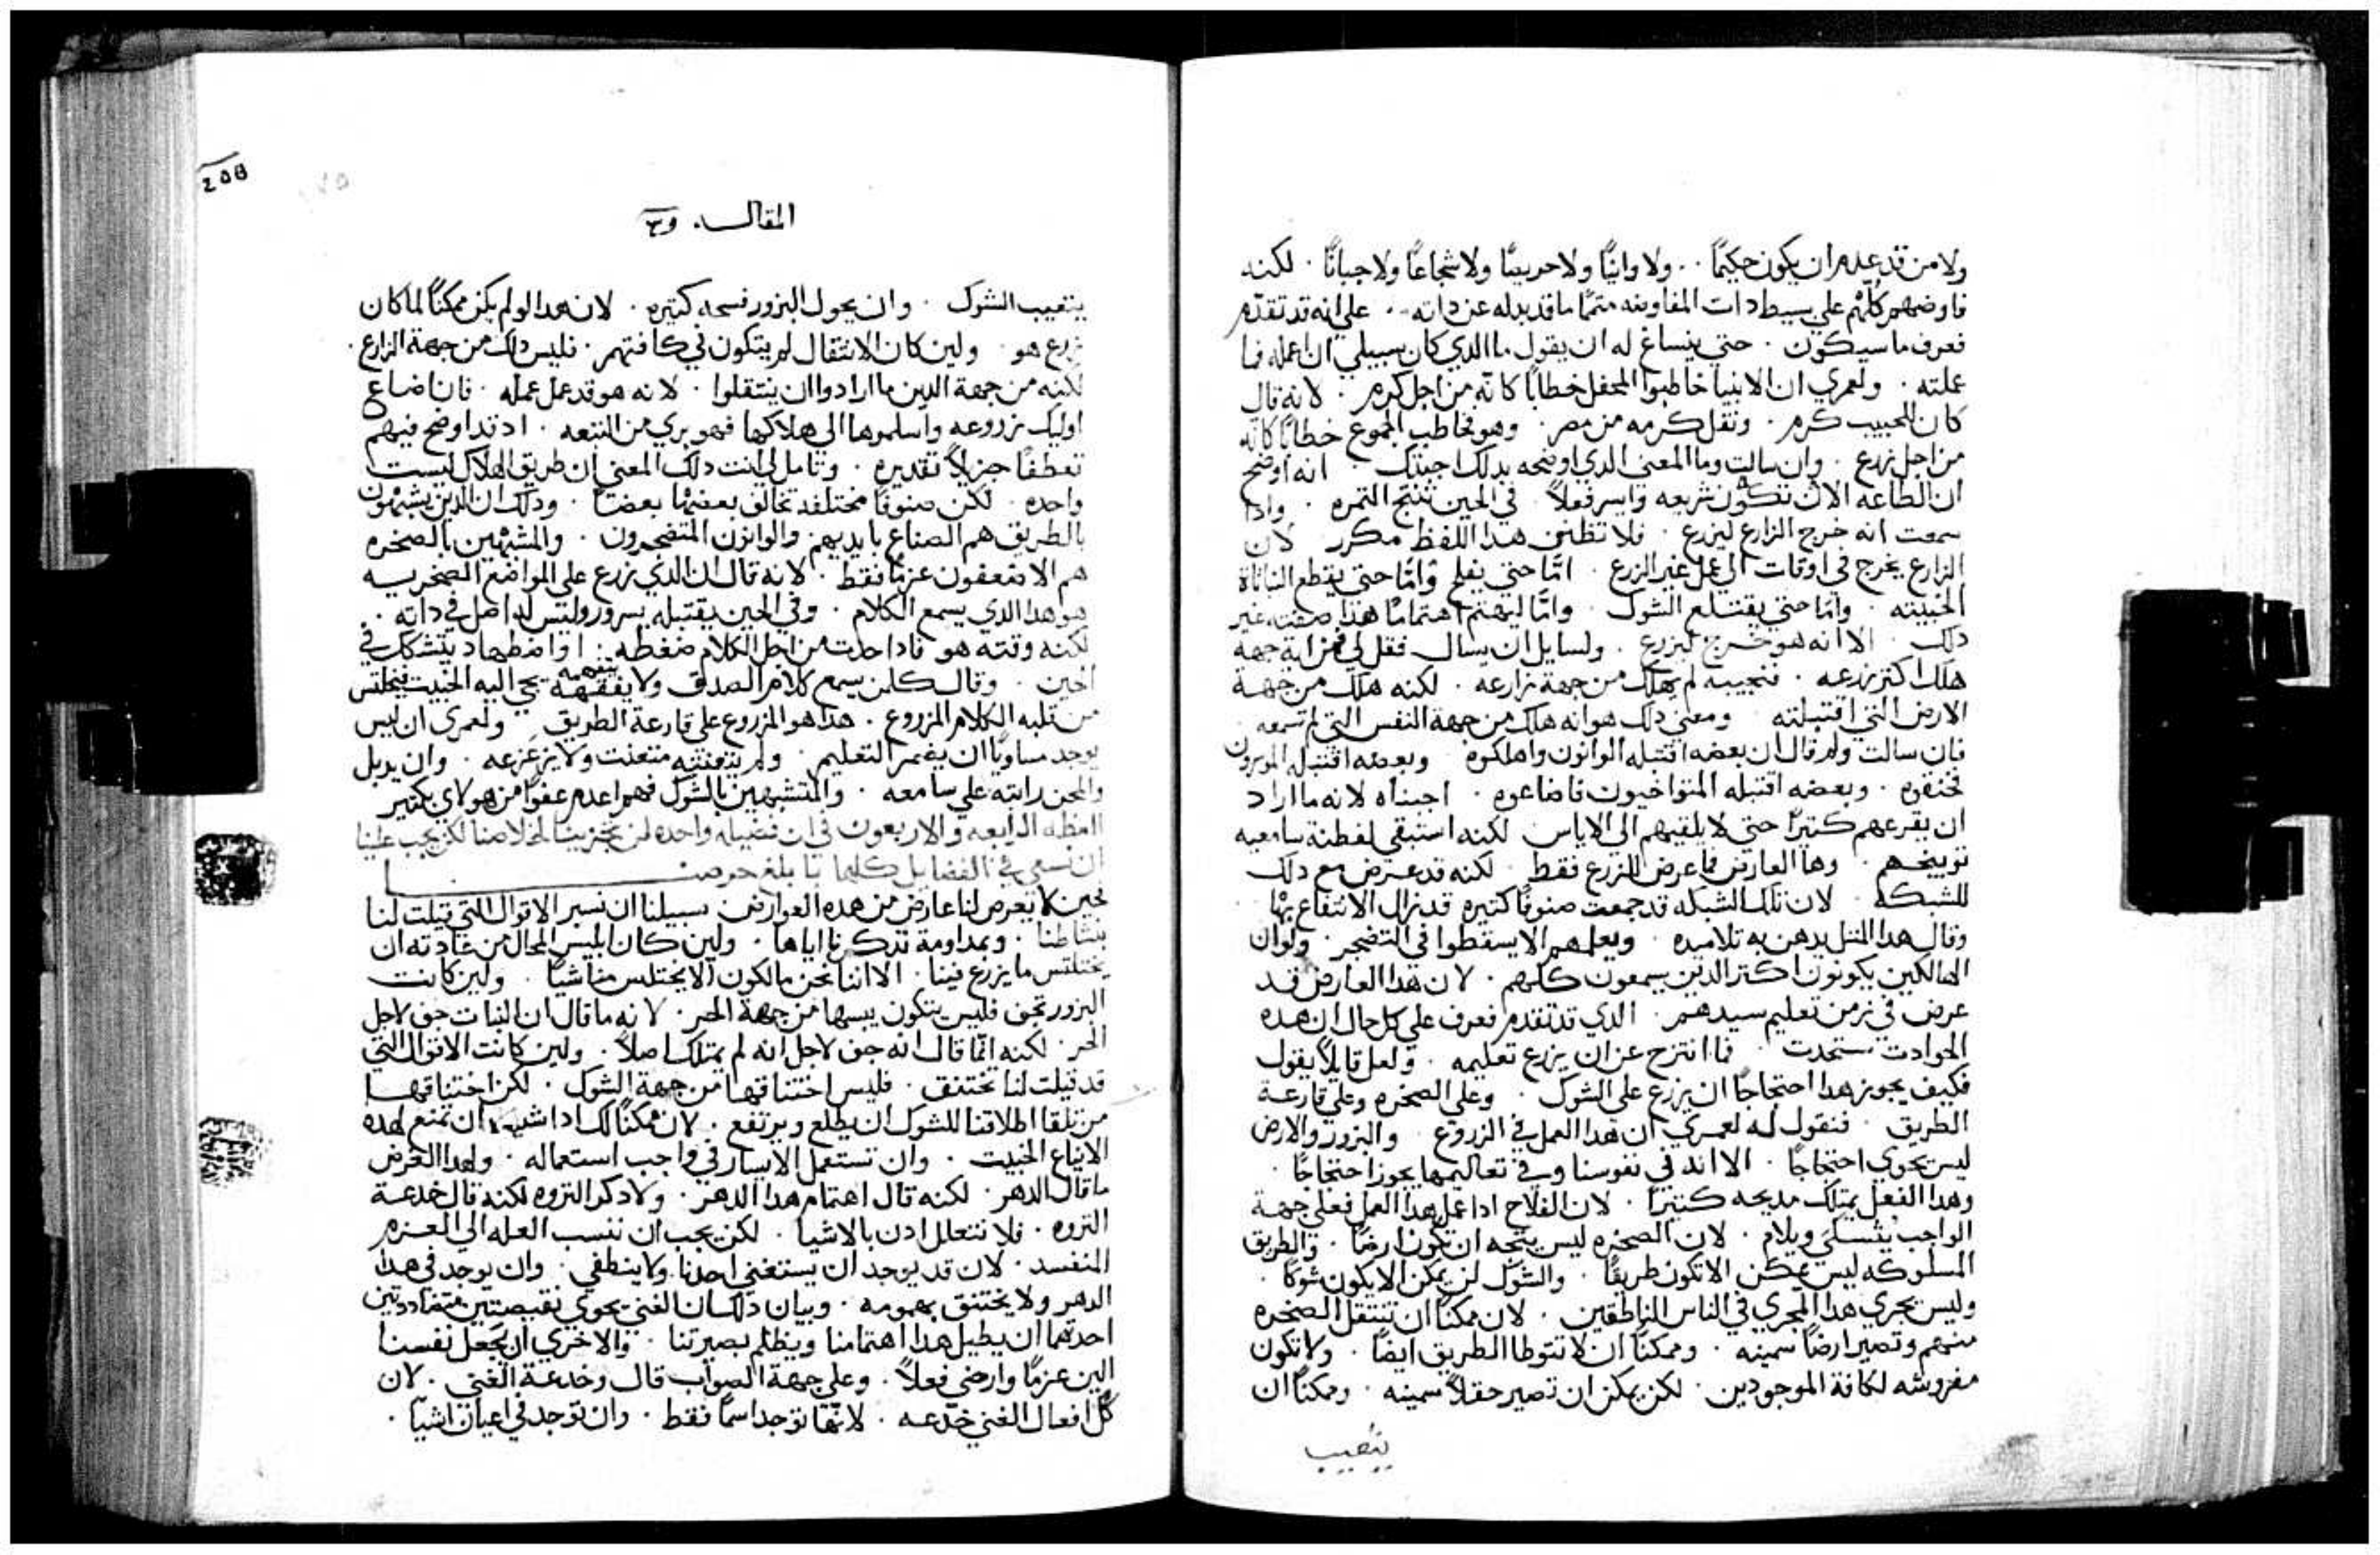 ولا من قد عدم ان يكون حكيمًا . . ولا وانيًا ولا حربيًا ولا شجاعًا ولا جبانًا . لكنه
فاوضهم كلهم علي بسيط دات المفاوضه متممًا ما قد بدله عن داته . علي انه قد تقدم
فعرف ما سيكون . حتي ينساغ له ان يقول ما الدي كان سبيلي ان اعمله فما
عملته . ولعمري ان الانبيا خاطبوا المحفل خطابًا كانه من اجل كرم . لانه قال
كان للحبيب كرم . ونقل كرمه من مصر . وهو فخاطب الجموع خطابًا كانه
من اجل زرع . وان سالت وما المعني الدي اوضحه بدلك اجبتك . انه اوضح
ان الطاعه الان تكون سريعه وايسر فعلاً . في الحين تنتج الثمره . وادا
سمعت انه خرج الزارع ليزرع . فلا تظنن هدا اللفظ مكرر لان
الزارع يخرج في اوقات الي عمل غير الزرع . امّا حتي يفلح وامّا حتي يقطع النباتاة
الخبيثه . وامّا حتي يقتلع الشوك . وامّا ليهتم اهتمامًا هدا صفته غير
دلك . الا انه هو خرج ليزرع . ولسايل ان يسال فقل لي فمن اية جهة
هلك اكثر زرعه . فنجيبه لم يهلك من جهة زارعه . لكنه هلك من جهة
الارض التي اقتبلته . ومعني دلك هو انه هلك من جهة النفس التي لم تسمعه
فان سالت ولم قال ان بعضه اقتبله الوانون واهلكوه . وبعضه اقتبله الموسرون
فخنقوه . وبعضه اقتبله المتواخيون فاضاعوه . اجبناه لانه ما اراد
ان يقرعهم كتيرًا حتي لا يلقيهم الي الاياس لكنه استبقي لفطنة سامعيه
توبيخهم . وها العارض فما عرض للزرع فقط . لكنه قد عرض مع دلك
للشبكه . لان تلك الشبكه قد جمعت صنوفًا كتيره قد زال الانتفاع بها .
وقال هدا المثل يدهن به تلاميده . ويعلمهم الا يسقطوا في التضجر . ولو ان
الهالكين يكونون اكتر الدين يسمعون كلهم . لان هدا العارض قد
عرض في زمن تعليم سيدهم . الدي قد تقدم فعرف علي كل حال ان هده
الحوادت ستحدت . فما انتزح عن ان يزرع تعليمه . ولعل قايلاً يقول
فكيف يجوز هدا احتجاجًا ان يزرع علي الشوك . وعلي الصخره وعلي قارعة
الطريق . فنقول له لعمري ان هدا العمل في الزروع . والبزور والارض
ليس يحوي احتجاجًا . الا انه في نفوسنا وفي تعاليمها يحوز احتجاجًا .
وهدا الفعل يمتلك مديحه كتيرًا . لان الفلاح ادا عمل هدا العمل فعلي جهة
الواجب يشتكي ويلام . لان الصخره ليس يتجه ان تكون ارضًا . والطريق
المسلوكه ليس يمكن الا تكون طريقًا . والشوك لن يمكن الا يكون شوكًا .
وليس يجري هدا المجري في الناس الناطقين . لان ممكنًا ان تنتقل الصخره
منهم وتصير ارضًا سمينه . وممكنًا ان لا تتوطا الطريق ايضًا . ولا تكون
مفروشه لكافة الموجودين . لكن يمكن ان تصير حقلاً سمينه . وممكنًا ان
يتغيب
208
المقاله . و٣
يتغيب الشوك . وان يحول البزور فسحه كتيره . لان هدا لو لم يكن ممكنًا لما كان
زرع هو . ولين كان الانتقال لم يتكون في كافتهم . فليس دلك من جهة الزارع .
لكنه من جهة الدين ما ارادوا ان ينتقلوا . لانه هو قد عمل عمله . فان اضاع
اوليك زروعه واسلموها الي هلاكها فهو بري من التبعه . اد قد اوضح فيهم
تعطفًا جزيلاً تقديره . وتامل لي انت دلك المعني ان طريق الهلاك ليست
واحده . لكن صنوفًا مختلفه تخالف بعضها بعضًا . ودلك ان الدين يشبهون
بالطريق هم الصناع بايديهم والوانون المتضجرون . والمشبهين بالصخره
هم الاضعفون عزمًا فقط . لانه قال ان الدي زرع علي المواضع الصخريه
هو هدا الدي يسمع الكلام . وفي الحين يقتبله بسرور وليس له اصل في داته .
لكنه وقته هو فادا حدت من اجل الكلام ضغطه . او اضطهاد يتشكك في
الحين . وقال كلمن يسمع كلام الصدق ولا يفقهه يتفهمه يجي اليه الخبيت فيختلس
من قلبه الكلام المزروع . هدا هو المزروع علي قارعة الطريق . ولعمري ان ليس
يوجد مساويًا ان يغمر التعليم . ولم يتعنته متعنت ولا يزعزعه . وان يدبل
والمحن راتبه علي سامعه . والمتشبهين بالشوك فهم اعدم عفوًا من هولاي بكتير
العظه الرابعه والاربعون في ان فضيله واحده لن تجزينا لخلاصنا لكن يجب علينا
ان نسعي في الفضايل كلها بابلغ حرصنا
لحين لا يعرض لنا عارض من هده العوارض سبيلنا ان نسبر الاقوال التي قيلت لنا
بنشاطنا . وبمداومة تدكرنا اياها . ولين كان ابليس المحال من عادته ان
يختلس ما يزرع فينا . الا اننا نحن مالكون الا يختلس منا شيًا . ولين كانت
البزور تجف فليس يتكون يبسها من جهة الحر . لانه ما قال ان النبات جف لاجل
الحر . لكنه انما قال انه جف لاجل انه لم يمتلك اصلاً . ولين كانت الاقوال التي
قد قيلت لنا تختنق . فليس اختناقها من جهة الشوك . لكن اختناقها
من تلقا اطلاقنا للشوك ان يطلع ويرتفع . لان ممكنًا لك ادا شيت ان تمنع هده
الانباع الخبيت . وان تستعمل الايسار في واجب استعماله . ولهدا الغرض
ما قال الدهر . لكنه قال اهتمام هدا الدهر . ولا دكر التروه لكنه قال خدعة
التروه . فلا نتعلل ادن بالاشيا . لكن يجب ان ننسب العله الي العزم
المنفسد . لان قد يوجد ان يستغني احدنا ولا ينطغي . وان يوجد في هدا
الدهر ولا يختنق بهمومه . وبيان دلك ان الغني يحوي نقيصتين متضاددتين
احدتهما ان يطيل هدا اهتمامنا ويظلم بصيرتنا . والاخري ان يجعل نفسنا
الين عزمًا وارخي فعلاً . وعلي جهة الصواب قال وخدعة الغني . لان
كل افعال الغني خدعه . لانها توجد اسمًا فقط . وان توجد في اعيان اشيا .